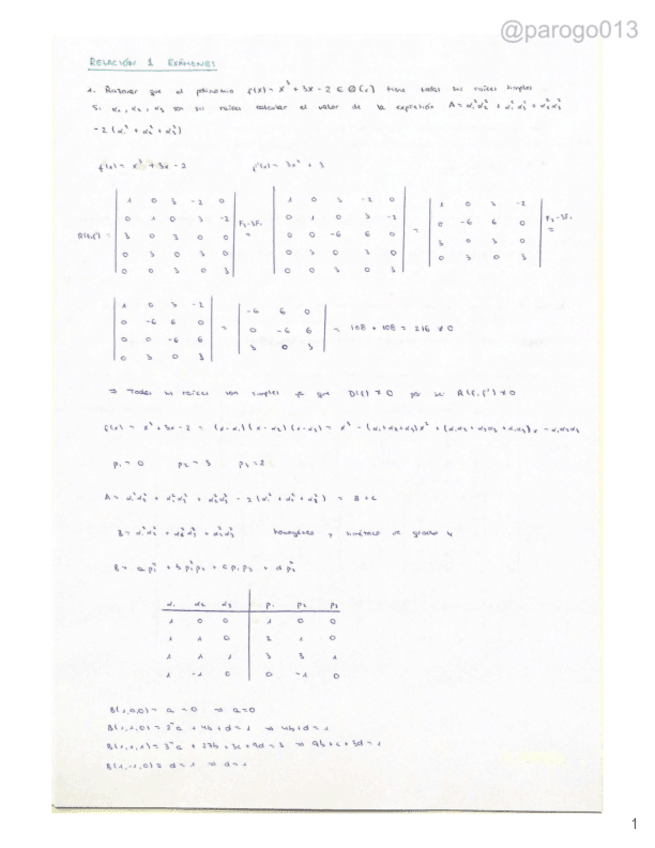 @parogo013
RELACIÓN 1 EXÁMENES
1. Razonar que el polinomio f(x) = x³ + 3x - 2 ∈ Q[x] tiene todas sus raíces simples
Si α₁, α₂, α₃ son sus raíces calcular el valor de la expresión A = α₁²α₂² + α₁²α₃² + α₂²α₃²
- 2(α₁² + α₂² + α₃²)
f(x) = x³ + 3x - 2 f'(x) = 3x² + 3
R(f,f') =
1 0 3 -2 0
0 1 0 3 -2
3 0 3 0 0
0 3 0 3 0
0 0 3 0 3
F₃-3F₁
=
1 0 3 -2 0
0 1 0 3 -2
0 0 -6 6 0
0 3 0 3 0
0 0 3 0 3
=
1 0 3 -2
0 -6 6 0
3 0 3 0
0 3 0 3
F₃-3F₁
=
1 0 3 -2
0 -6 6 0
0 0 -6 6
0 3 0 3
=
-6 6 0
0 -6 6
3 0 3
= 108 + 108 = 216 ≠ 0
⇒ Todas sus raíces son simples ya que D(f) ≠ 0 por ser R(f,f') ≠ 0
f(x) = x³ + 3x - 2 = (x-α₁)(x-α₂)(x-α₃) = x³ - (α₁+α₂+α₃)x² + (α₁α₂+α₂α₃+α₁α₃)x - α₁α₂α₃
p₁ = 0 p₂ = 3 p₃ = 2
A = α₁²α₂² + α₁²α₃² + α₂²α₃² - 2(α₁² + α₂² + α₃²) = B + C
B = α₁²α₂² + α₁²α₃² + α₂²α₃² homogéneo y simétrico de grado 4
B = a p₁⁴ + b p₁²p₂ + c p₁p₃ + d p₂²
α₁ α₂ α₃ p₁ p₂ p₃
1 0 0 1 0 0
1 1 0 2 1 0
1 1 1 3 3 1
1 -1 0 0 -1 0
B(1,0,0) = a = 0 ⇒ a=0
B(1,1,0) = 2⁴a + 4b + d = 1 ⇒ 4b+d = 1
B(1,1,1) = 3⁴a + 27b + 3c + 9d = 3 ⇒ 9b+c+3d = 1
B(1,-1,0) = d = 1 ⇒ d=1
1